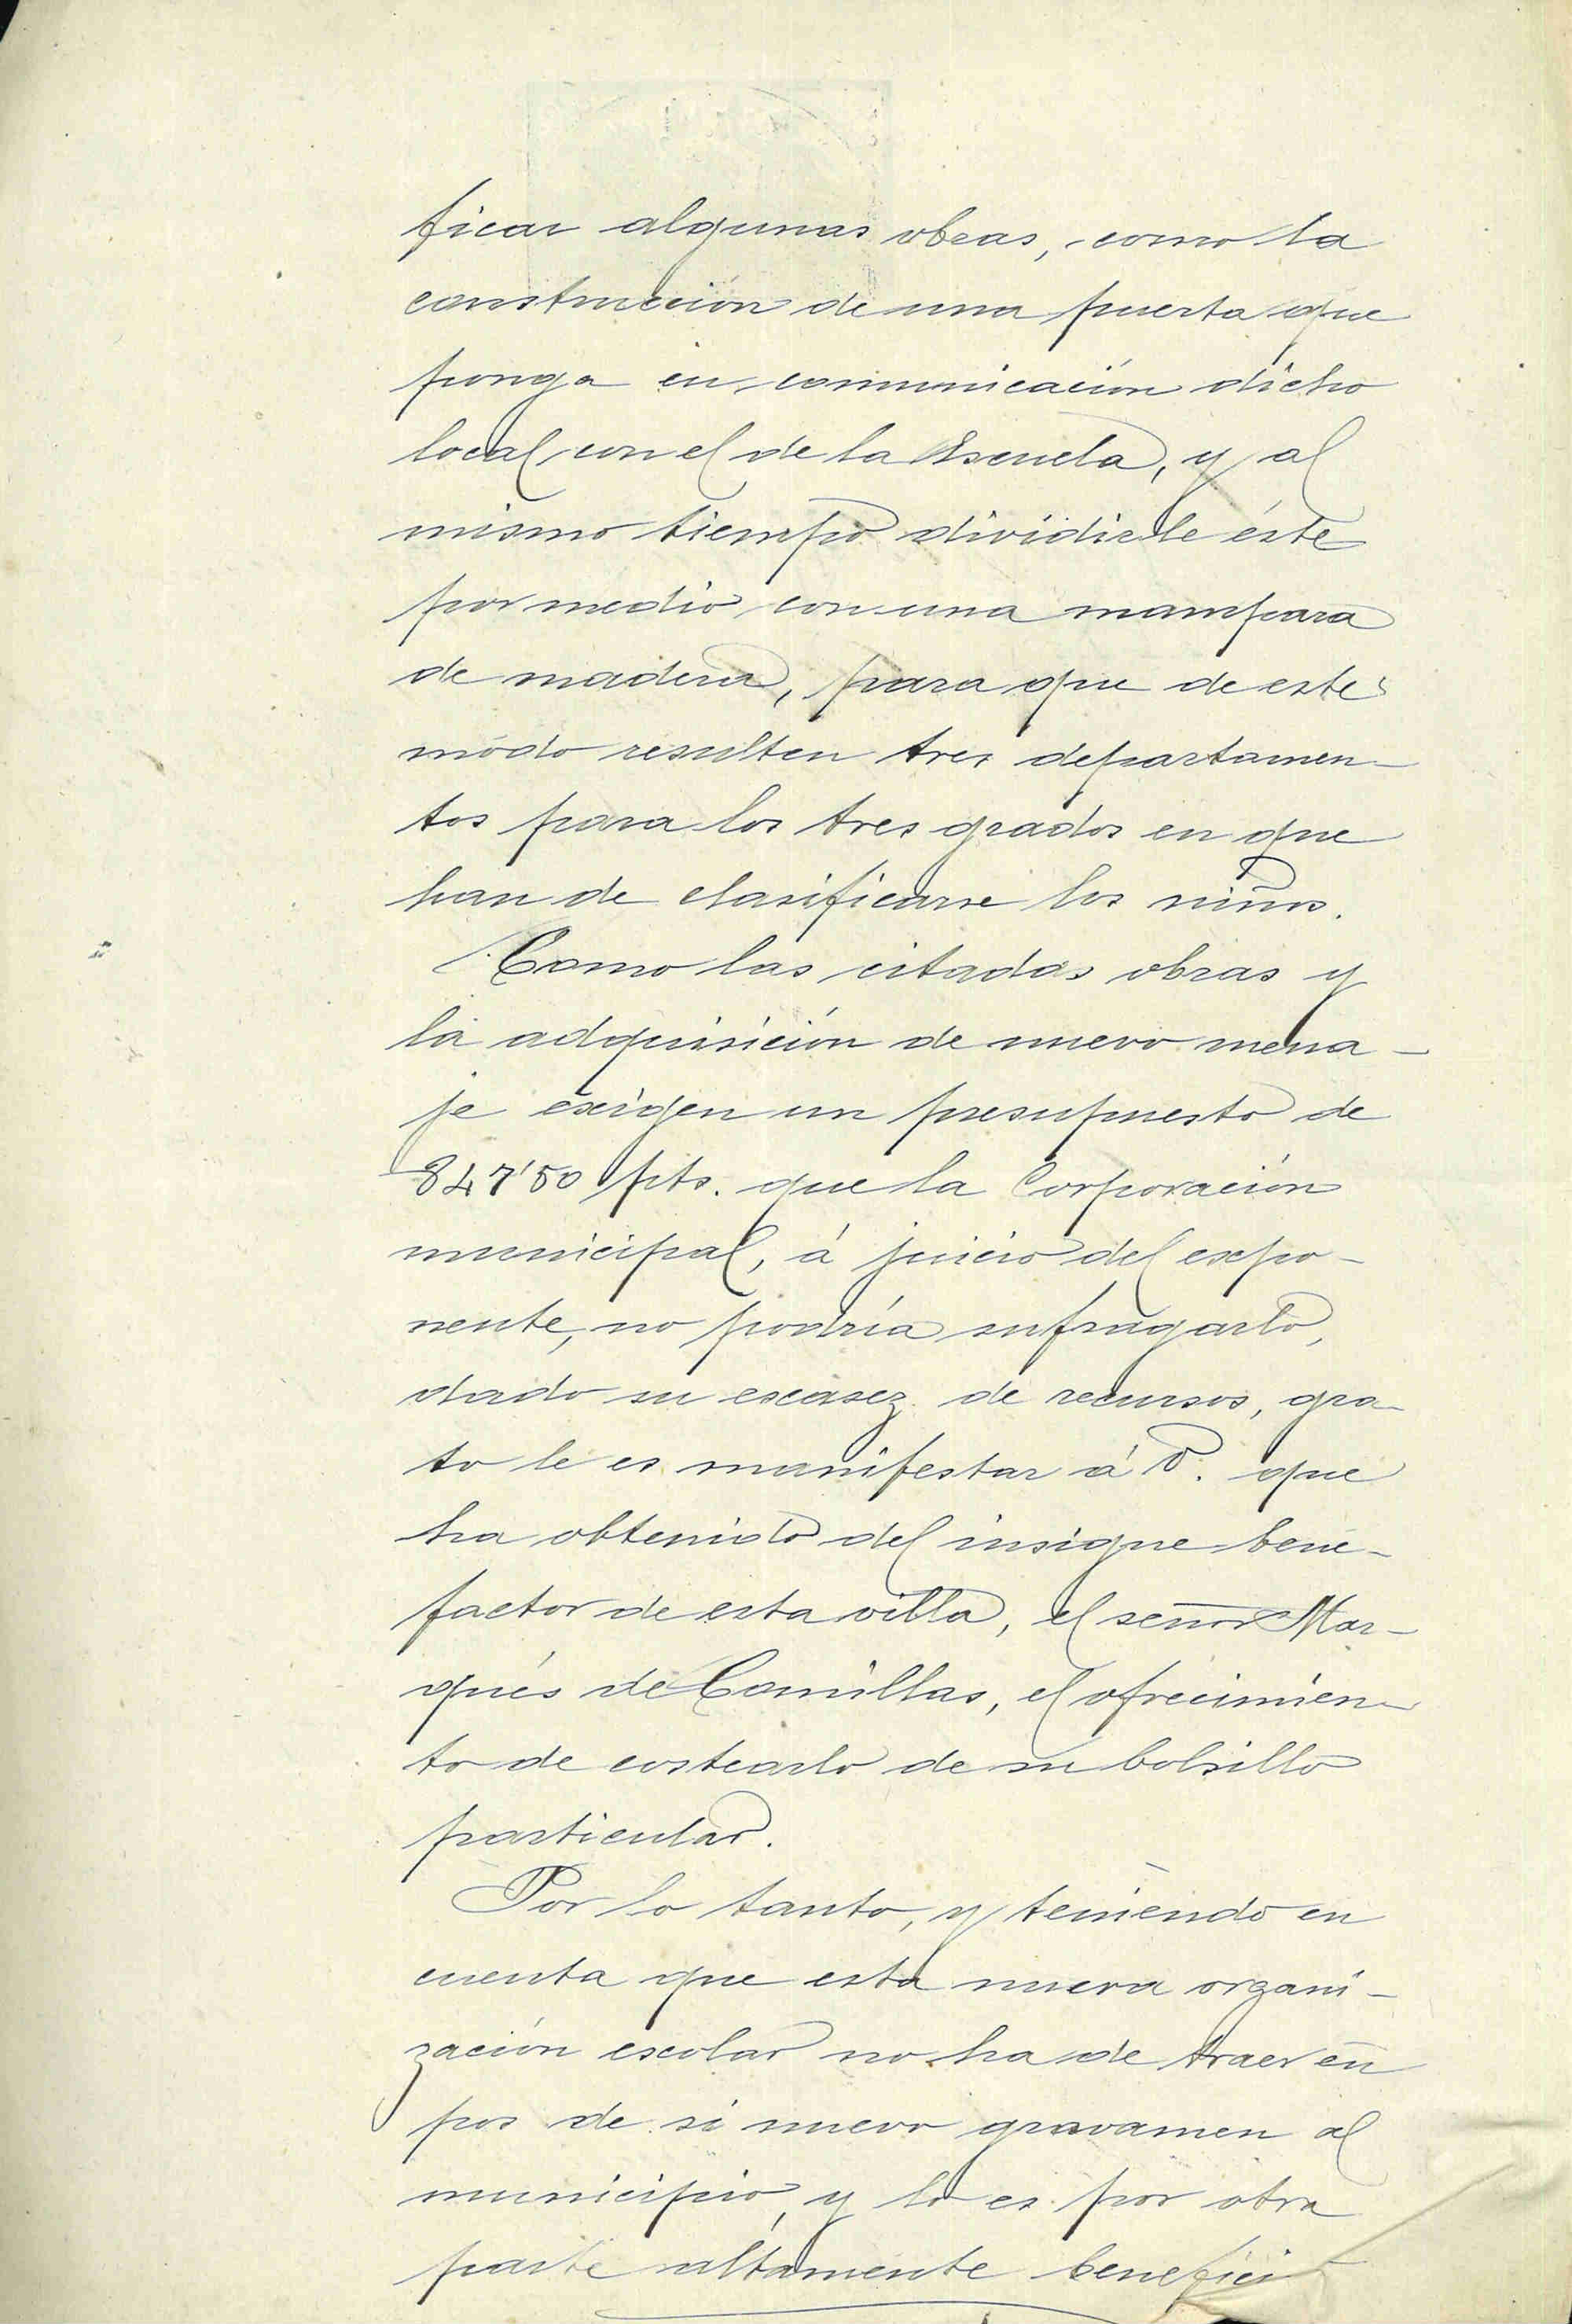 ficar algunas obras, como la
construcción de una puerta que
ponga en comunicación dicho
local con el de la Escuela, y al
mismo tiempo dividirle éste
por medio con una mampara
de madera, para que de este
modo resulten tres departamen-
tos para los tres grados en que
han de clasificarse los niños.
Como las citadas obras y
la adquisición de nuevo mena-
je exigen un presupuesto de
847'50 pts. que la Corporación
municipal, á juicio del expo-
nente, no podría sufragarlo,
dado su escasez de recursos, gra-
to le es manifestar á V. que
ha obtenido del insigne bene-
factor de esta villa, el señor Mar-
qués de Comillas, el ofrecimien-
to de costearlo de su bolsillo
particular.
Por lo tanto, y teniendo en
cuenta que esta nueva organi-
zación escolar no ha de traer en
pos de sí nuevo gravamen al
municipio, y lo es por otra
parte altamente benefici-